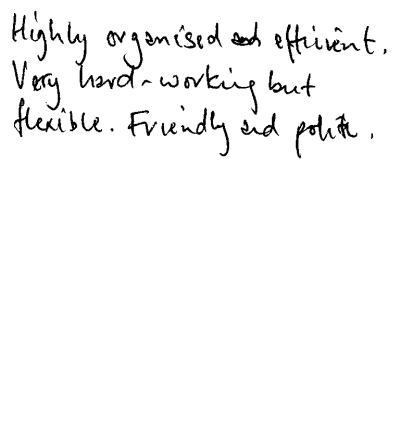 Highly organised and efficient.
Very hard-working but
flexible. Friendly and polite.